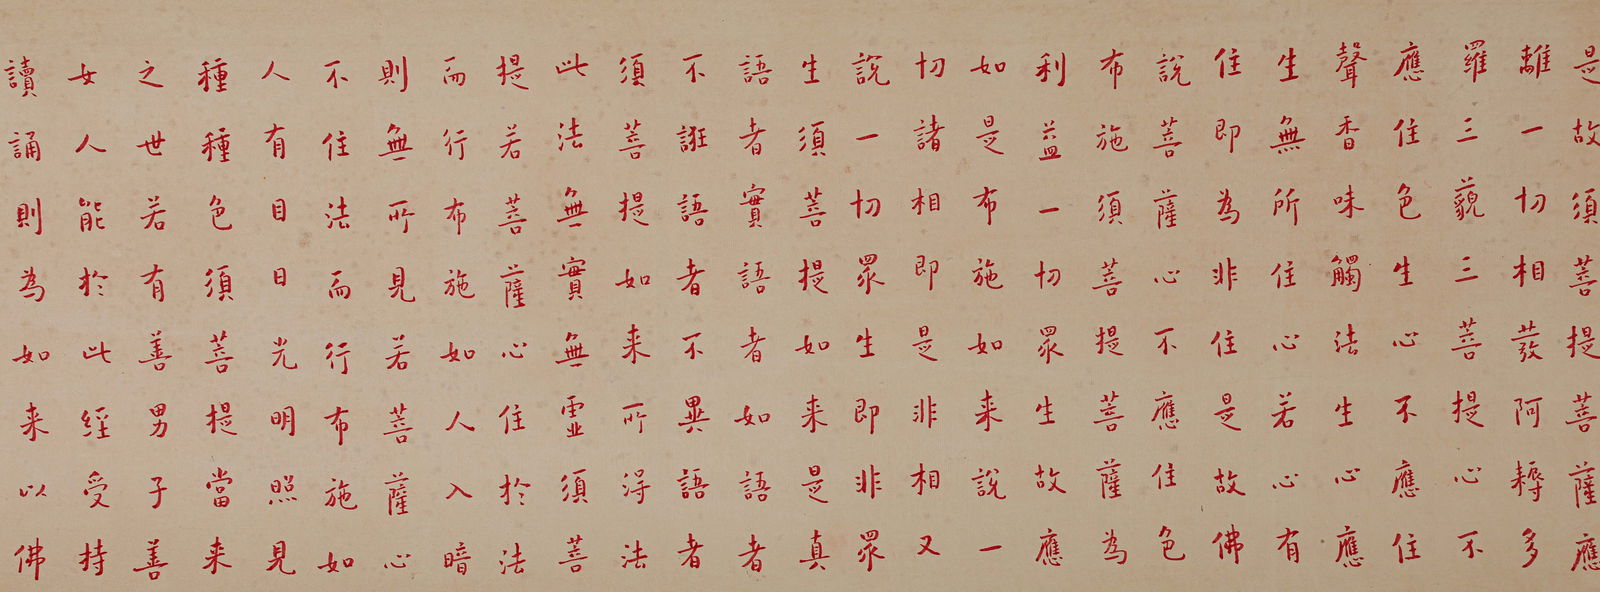 是故須菩提菩薩應
離一切相發阿耨多
羅三藐三菩提心不
應住色生心不應住
聲香味觸法生心應
生無所住心若心有
住即為非住是故佛
說菩薩心不應住色
布施須菩提菩薩為
利益一切眾生故應
如是布施如来說一
切諸相即是非相又
說一切眾生即非眾
生須菩提如来是真
語者實語者如語者
不誑語者不異語者
須菩提如来所得法
此法無實無虛須菩
提若菩薩心住於法
而行布施如人入暗
則無所見若菩薩心
不住法而行布施如
人有目日光明照見
種種色須菩提當来
之世若有善男子善
女人能於此經受持
讀誦則為如来以佛